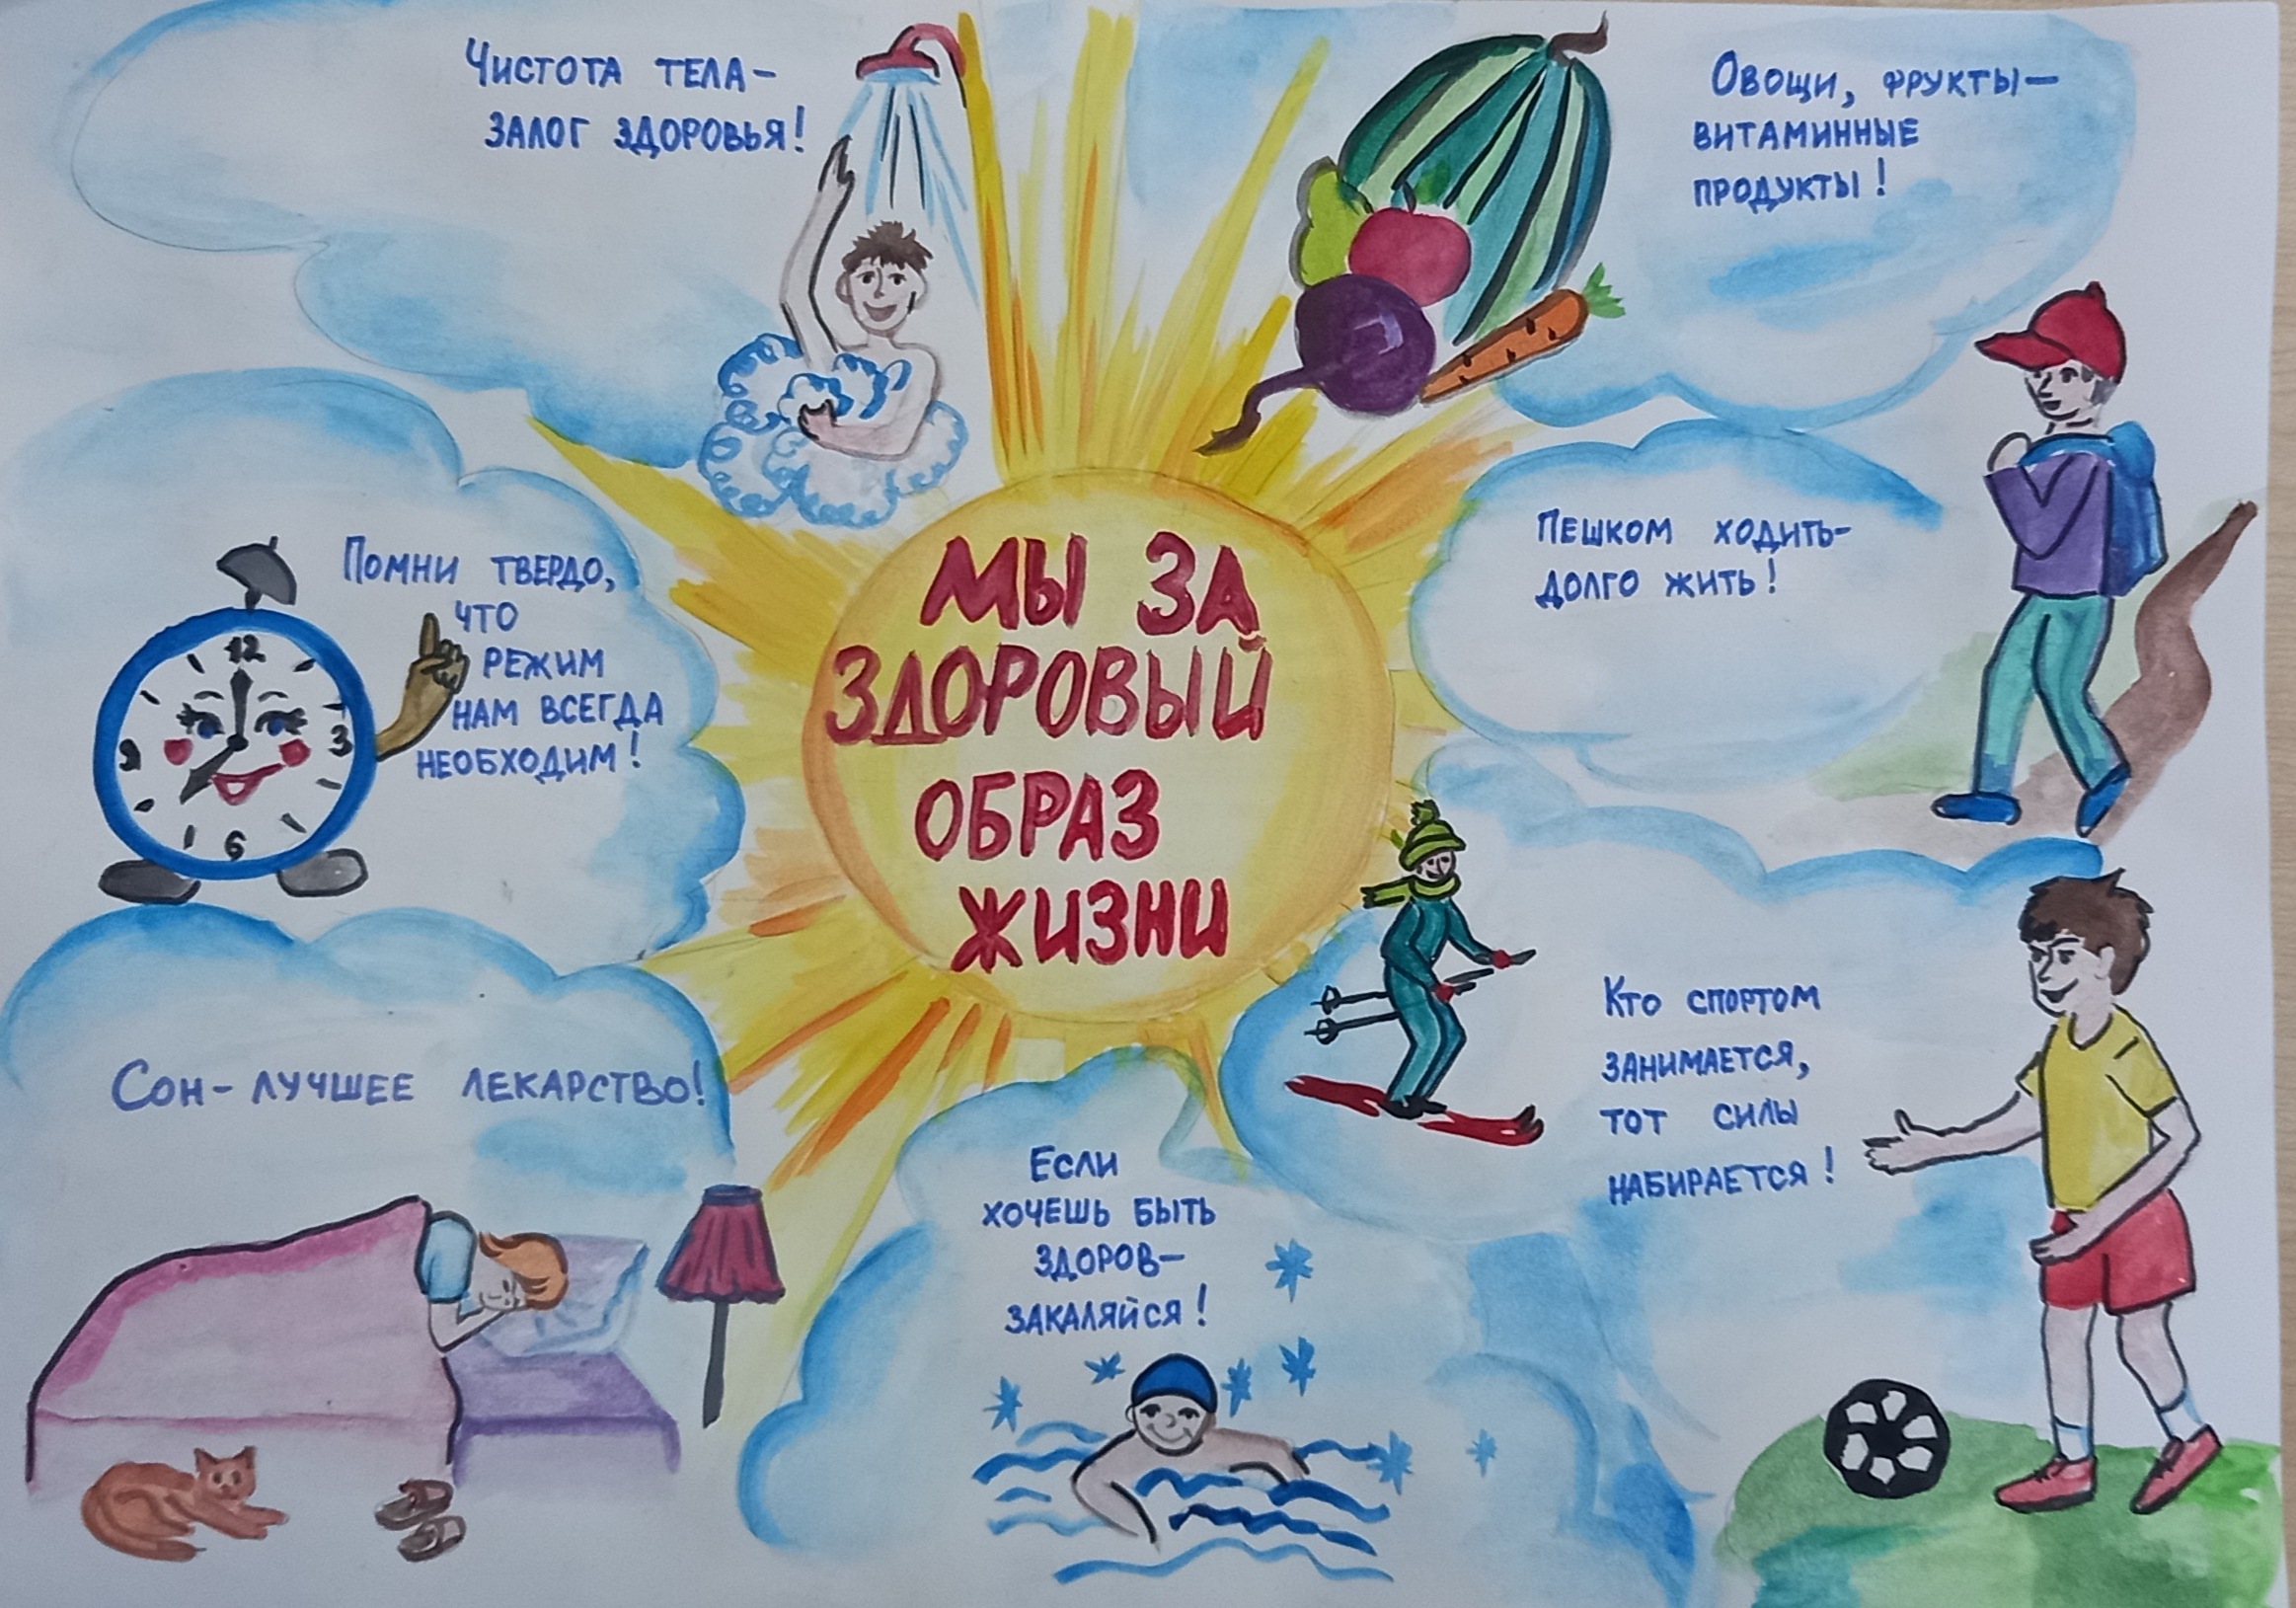 Чистота тела-
залог здоровья!
Овощи, фрукты-
витаминные
продукты!
Помни твердо,
что
режим
нам всегда
необходим!
12
3
6
9
Мы за
здоровый
образ
жизни
Пешком ходить-
долго жить!
Сон-лучшее лекарство!
Если
хочешь быть
здоров-
закаляйся!
Кто спортом
занимается,
тот силы
набирается!